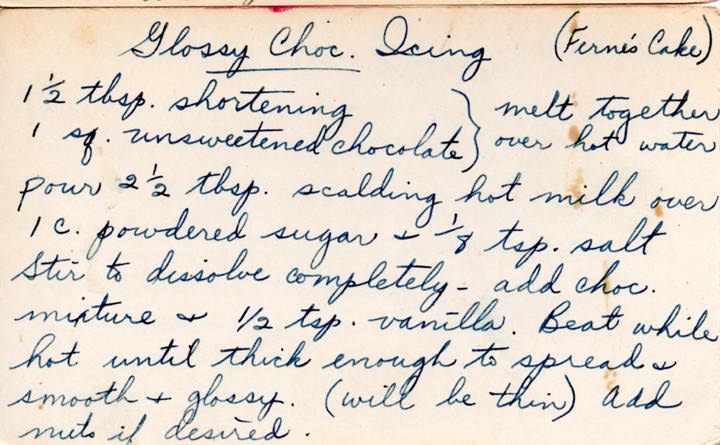 Glossy Choc. Icing (Ferne's Cake)
1 1/2 tbsp. shortening } melt together
1 sq. unsweetened chocolate } over hot water
pour 2 1/2 tbsp. scalding hot milk over
1 c. powdered sugar + 1/8 tsp. salt
Stir to dissolve completely - add choc.
mixture + 1/2 tsp. vanilla. Beat while
hot until thick enough to spread +
smooth + glossy. (will be thin) Add
nuts if desired.